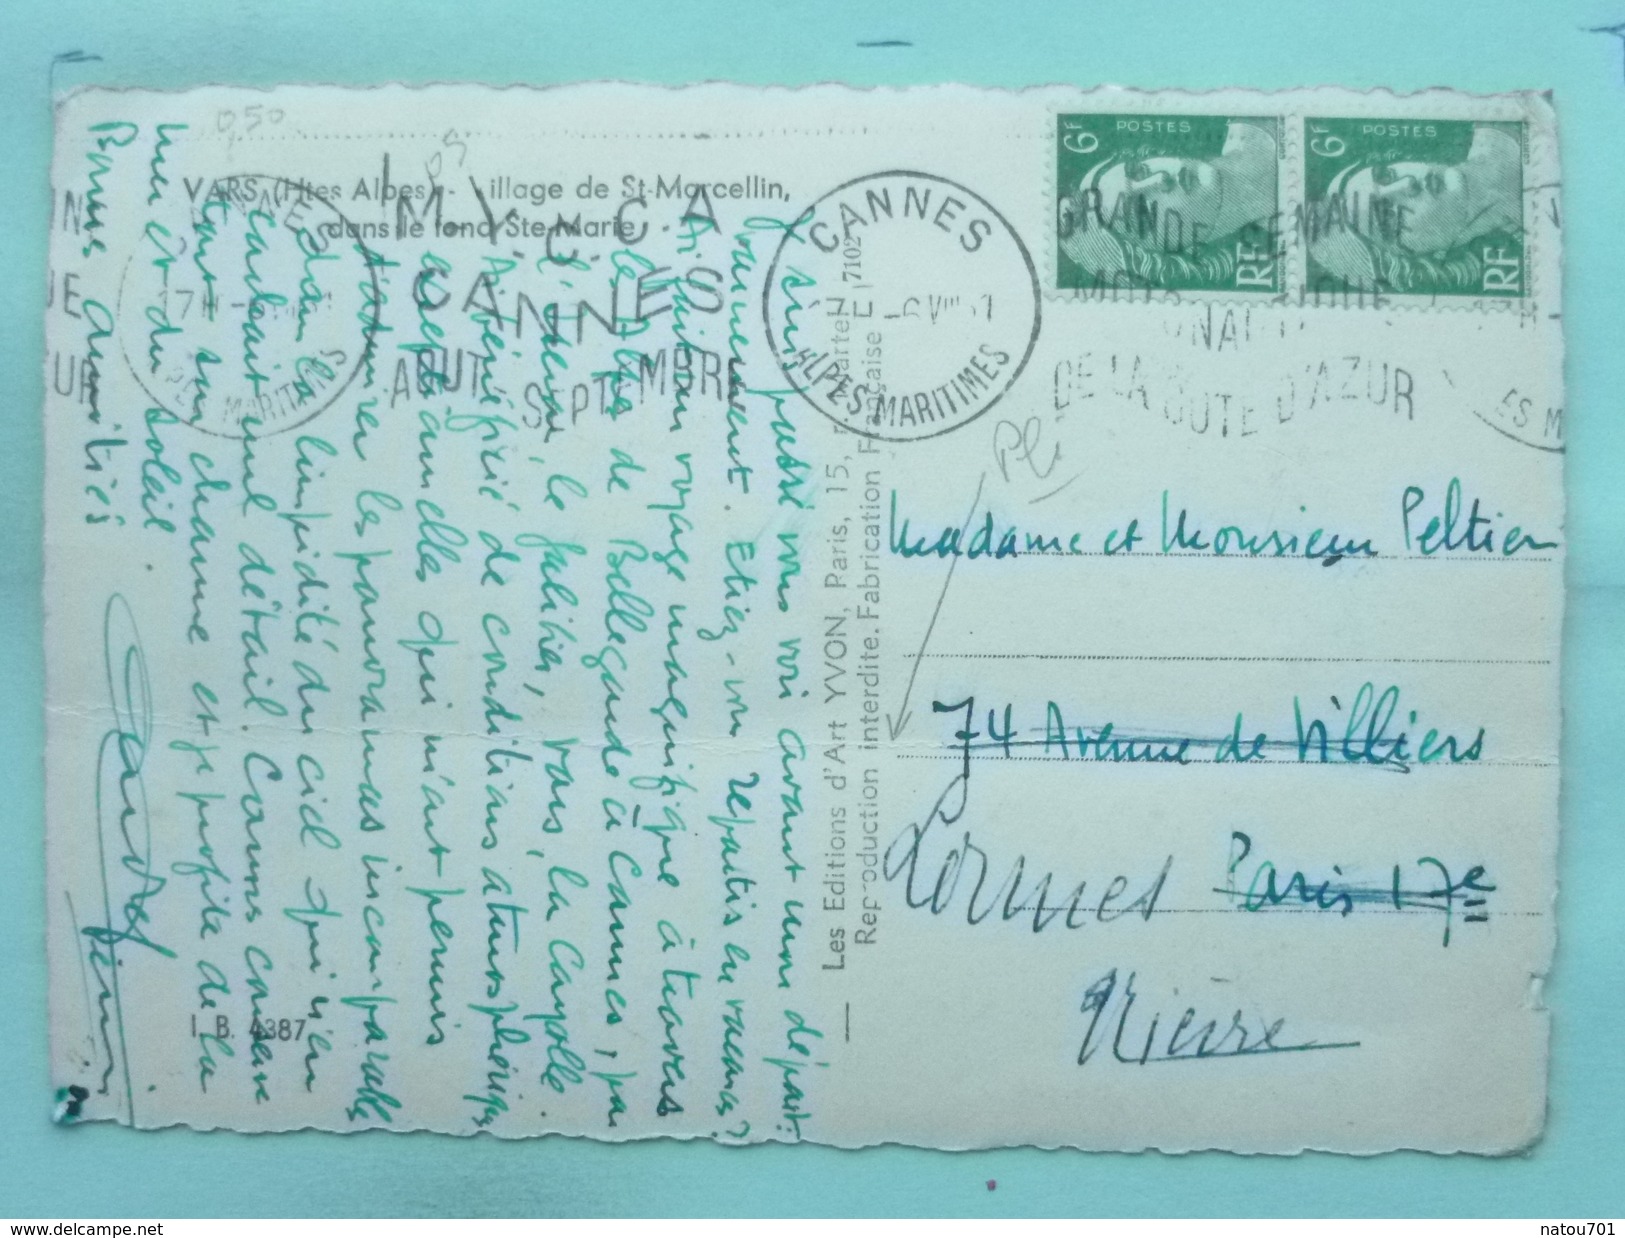 050
VARS (Htes Alpes) - illage de St-Marcellin,
dans le fond Ste-Marie.
M.Y.C.C.A
CANNES
AOUT SEPTEMBRE
CANNES
ALPES MARITIMES
6F POSTES RF
6F POSTES RF
GRANDE SEMAINE
MOTONAUTIQUE
DE LA COTE D'AZUR
Pli
Je suis passé vous voir avant mon départ:
vainement. Etiez-vous repartis en vacances?
Ai fait un voyage magnifique à travers
les Alpes de Bellegarde à Cannes, par
l'Iseran, le Galibier, Vars, la Cayolle.
Ai bénéficié de conditions atmosphériques
exceptionnelles qui m'ont permis
d'admirer les panoramas incomparables
dans la limpidité du ciel qui n'en
cachait nul détail. Cannes conserve
tout son charme et je profite de la
mer et du soleil.
Bonnes amitiés
Les Editions d'Art YVON, Paris, 15, r. Martel
Reproduction interdite. Fabrication Française E 17102
Madame et Monsieur Peltier
74 Avenue de Villiers
Paris 17e
Lormes
Nièvre
I. B. 4387
natou701